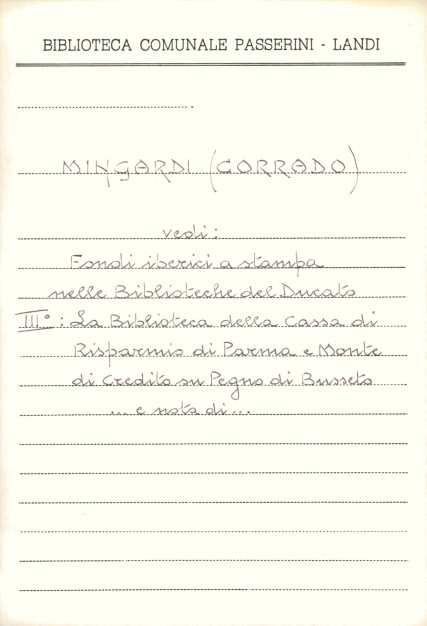 BIBLIOTECA COMUNALE PASSERINI - LANDI
MINGARDI (CORRADO)
vedi:
Fondi iberici a stampa
nelle Biblioteche del Ducato
III°: La Biblioteca della Cassa di
Risparmio di Parma e Monte
di Credito su Pegno di Busseto
... e nota di ...